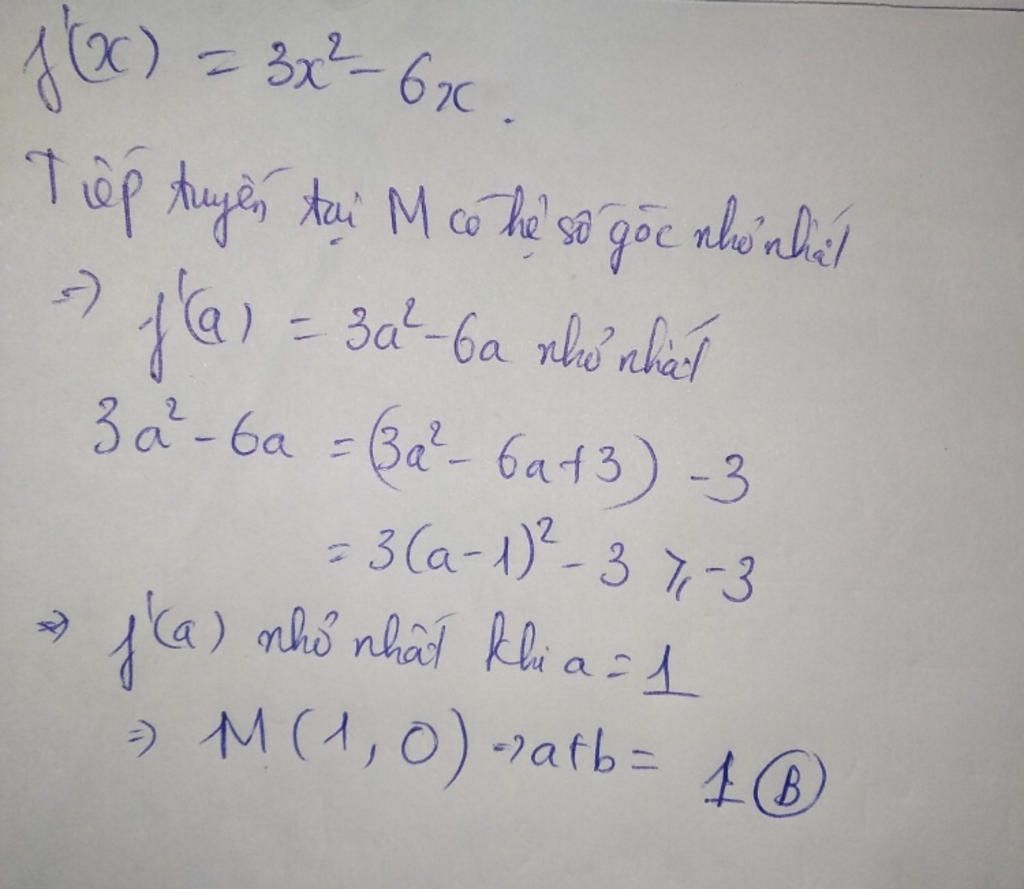 f'(x) = 3x² - 6x.
Tiếp tuyến tại M có hệ số góc nhỏ nhất
=> f'(a) = 3a² - 6a nhỏ nhất
3a² - 6a = (3a² - 6a + 3) - 3
= 3(a - 1)² - 3 ⩾ -3
=> f'(a) nhỏ nhất khi a = 1
=> M(1, 0) => a + b = 1 Ⓑ